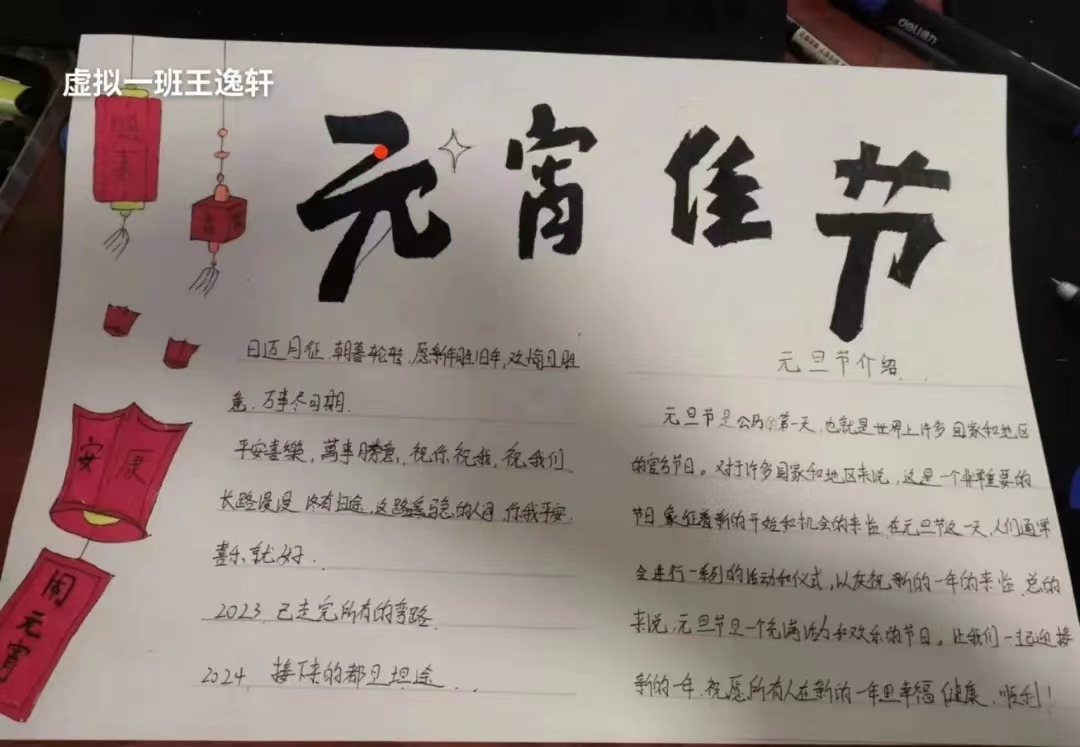 虚拟一班王逸轩
deli
元宵佳节
安康
闹元宵
日迈月征,朝暮轮转,愿新年胜旧年,欢愉且胜
意,万事尽可期.
平安喜樂,萬事勝意,祝你祝我,祝我们.
长路漫漫 终有归途,这路遥马急的人间,你我平安
喜乐就好.
2023 已走完所有的弯路
2024, 接下来的都是坦途...
元旦节介绍
元旦节是公历的第一天,也就是世界上许多国家和地区
的官方节日。对于许多国家和地区来说,这是一个非常重要的
节日,象征着新的开始和机会的来临,在元旦节这一天,人们通常
会进行一系列的活动和仪式,以庆祝新的一年的来临 总的
来说,元旦节是一个充满活力和欢乐的节日。让我们一起迎接
新的一年,祝愿所有人在新的一年里幸福,健康,顺利!